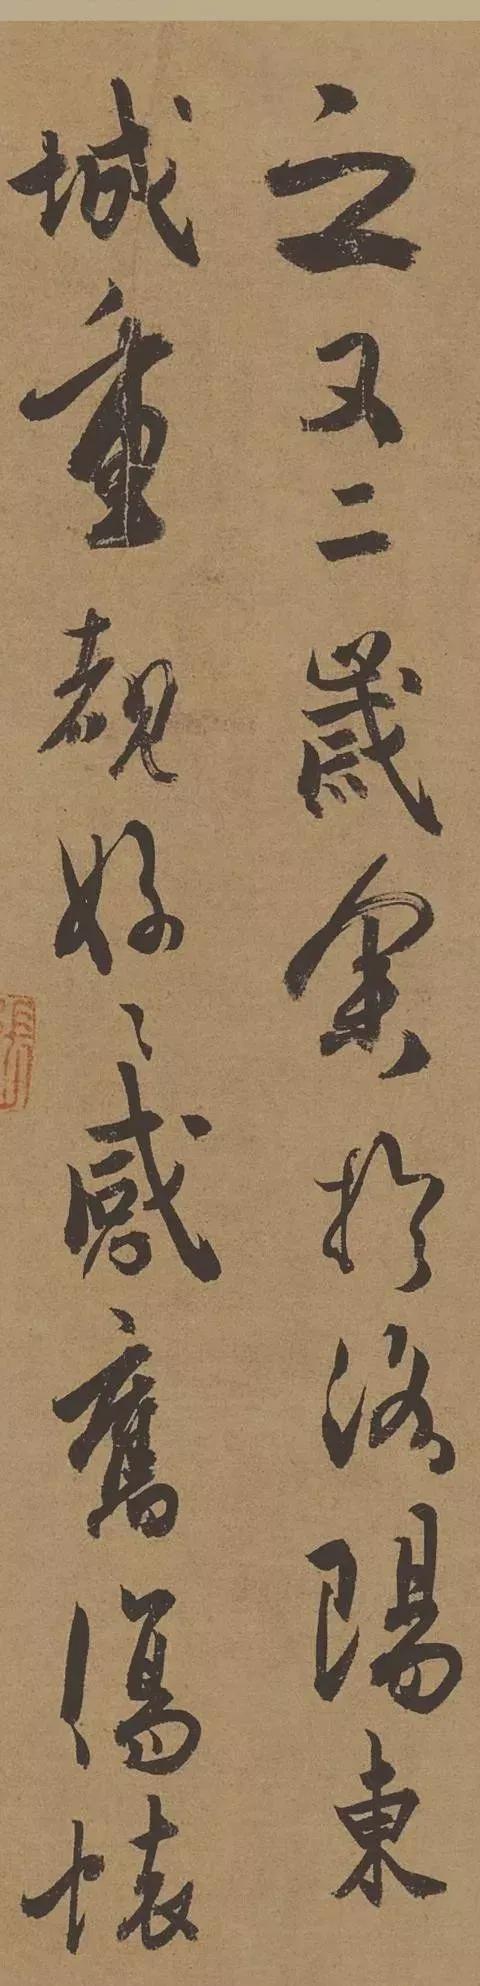 之又二歲余於洛陽東
城重覩好〻感舊傷懷